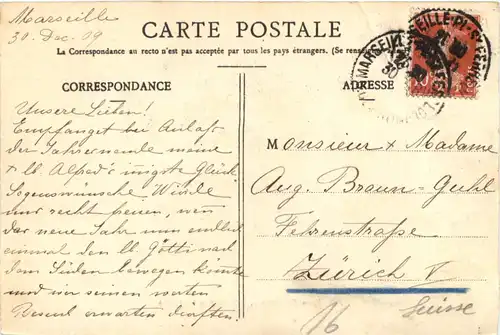 Marseille
30. Dec. 09
CARTE POSTALE
La Correspondance au recto n'est pas acceptée par tous les pays étrangers. (Se rensei
CORRESPONDANCE
ADRESSE
Unsere Lieben!
Empfanget bei Anlaß
der Jahreswende meine
+ ll. Alfred's innigste Glück
Segenswünsche Würde
mich recht freuen, wen
das neue Jahr nun endlich
einmal den ll. Götti nach
dem Süden bewegen könnte
und wir seinen werten
Besuch erwarten dürften.
Monsieur x Madame
Aug. Braun-Guhl
Fehrenstraße
Zürich V
Suisse
16